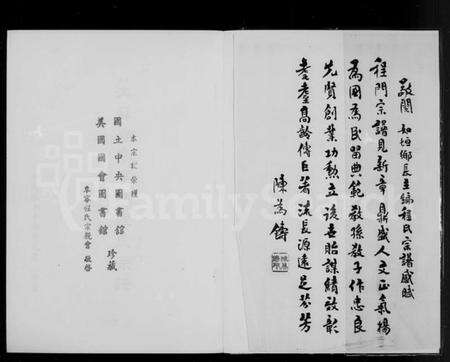 敬閱 如垣鄉長主編程氏宗譜感賦
程門宗譜見新章鼎盛人文正氣揚
為國為民留典範教孫教子作忠良
先賢創業功勳立後喜貽謀績啟彰
耄耋高齡傳巨著流長源遠足芬芳
陳為鑄
本宗訌榮穫
國立中央圖書館
美國國會圖書館
珍藏
本寧程氏宗親會 敬啓
FamilySearch